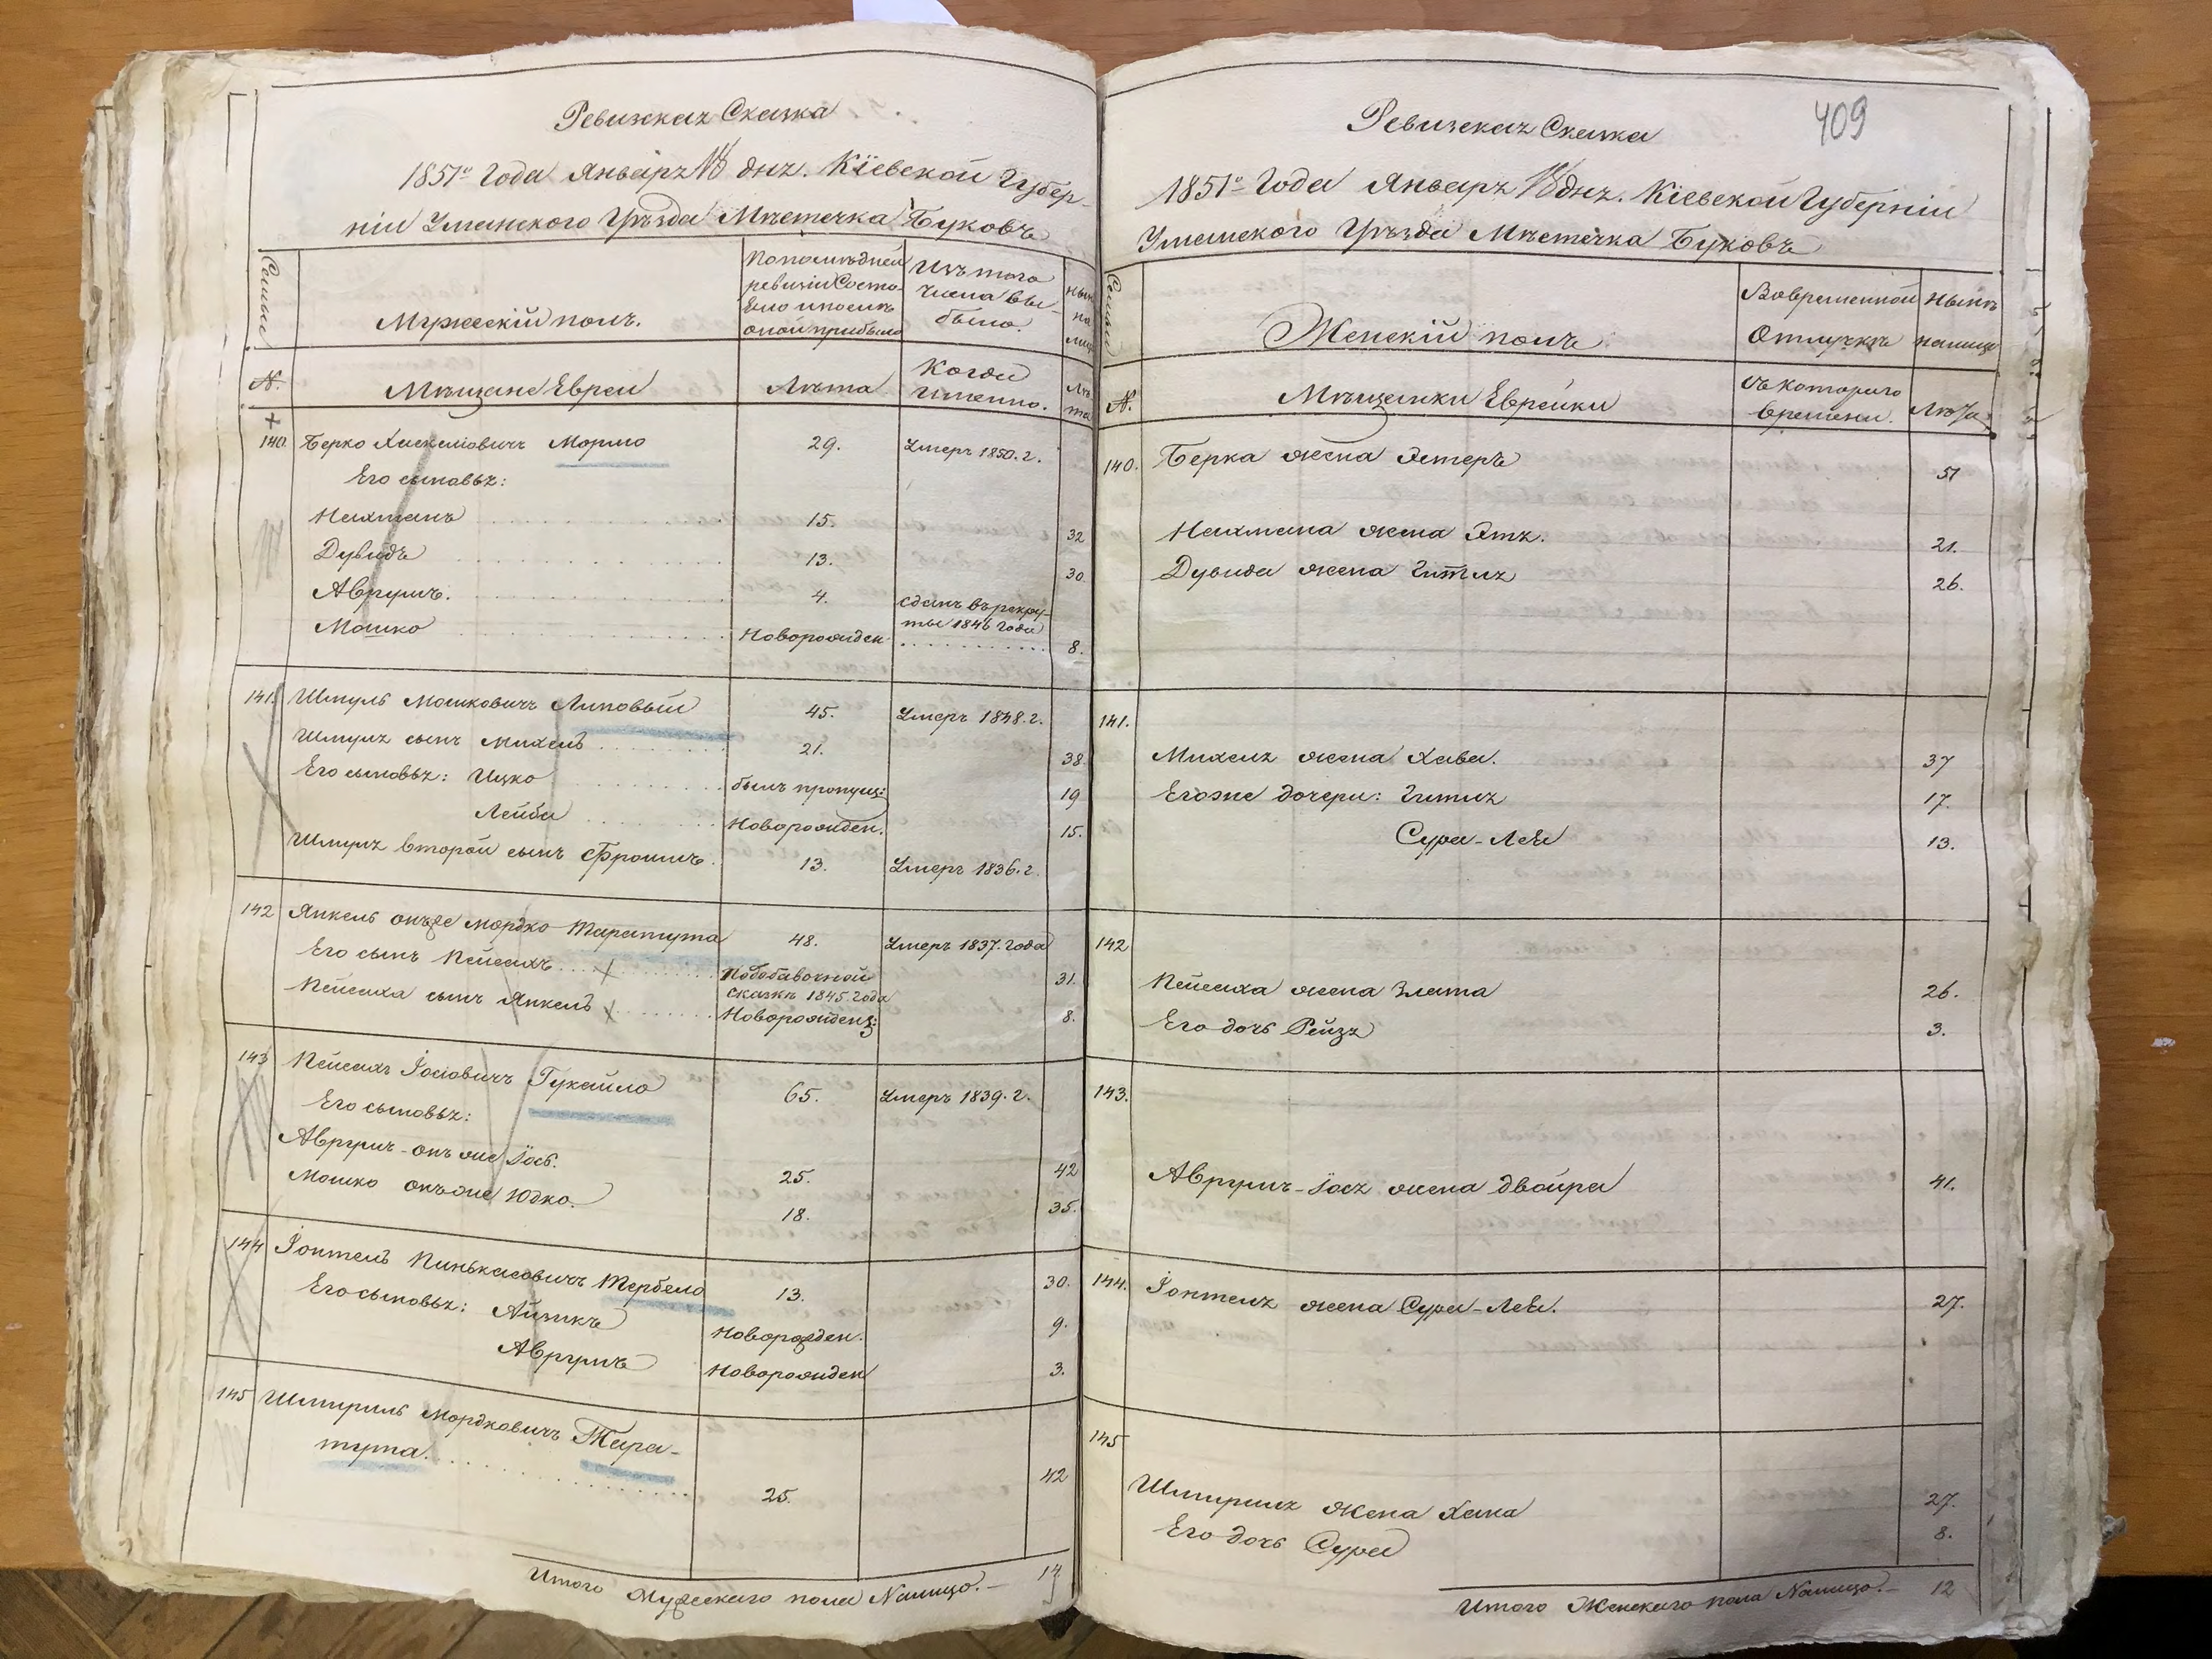 Ревизская Сказка
1851го Года Января 18 дня. Кіевской Губер-
ніи Уманского Уѣзда Мѣстечка Буковъ
Семьи
Мужескій полъ.
По последней
ревизіи Состо-
яло и после
оной прибыло
Изъ того
числа вы-
было.
Нынѣ
на
лицо
№.
Мѣщане Евреи
Лѣта
Когда
Именно.
Лѣ
та
140. Берко Хаскелiовичъ Мормо 29. Умеръ 1850. г.
Его сыновья:
Нахманъ 15. 32
Дувидъ 13. 30
Аврумъ. 4. сданъ въ рекру-
ты 1846 Года
Мошко Новорожден 8.
141. Шмуль Мошковичъ Липовый 45. Умеръ 1848. г.
Шмуля сынъ Михель 21. 38
Его сыновья: Ицко былъ пропущ: 19
Лейба Новорожден. 15.
Шмуля второй сынъ Фроимъ. 13. Умеръ 1836. г.
142 Янкель онъже Мордко Таратута 48. Умеръ 1837. Года
Его сынъ Пейсахъ По добавочной 31.
сказкѣ 1845. Года
Пейсаха сынъ Янкель Новорожденъ: 8.
143 Пейсахъ Іосіовичъ Гукайло 65. Умеръ 1839. г.
Его сыновья:
Аврумъ-онъ же Іось. 25. 42
Мошко онъже Юдко. 18. 35.
144 Іонтель Пинькасовичъ Тербело 13. 30.
Его сыновья: Айзикъ Новорожден. 9.
Аврумъ Новорожден 3.
145 Шмириль Мордковичъ Тара-
тута. 25. 42
Итого Мужескаго пола Налицо.- 14
409
Ревизская Сказка
1851го Года Января 18 дня. Кіевской Губерніи
Уманского Уѣзда Мѣстечка Буковъ
Семьи
Женскій полъ
Вовременной
Отлучкѣ
Нынѣ
налицо
№.
Мѣщанки Еврейки
съ котораго
времени.
Лѣта
140. Берка жена Эстеръ 51
Нахмана жена Этя. 21.
Дувида жена Гитля 26.
141.
Михеля жена Хава. 37
Егоже дочери: Гитля 17.
Сура-Лея 13.
142
Пейсаха жена Злата 26.
Его дочь Рейзя 3.
143.
Аврумъ-Іося жена Двойра 41.
144. Іонтеля жена Сура-Лея. 27.
145
Шмириля жена Хана 27.
Его дочь Сура 8.
Итого Женскаго пола Налицо.- 12